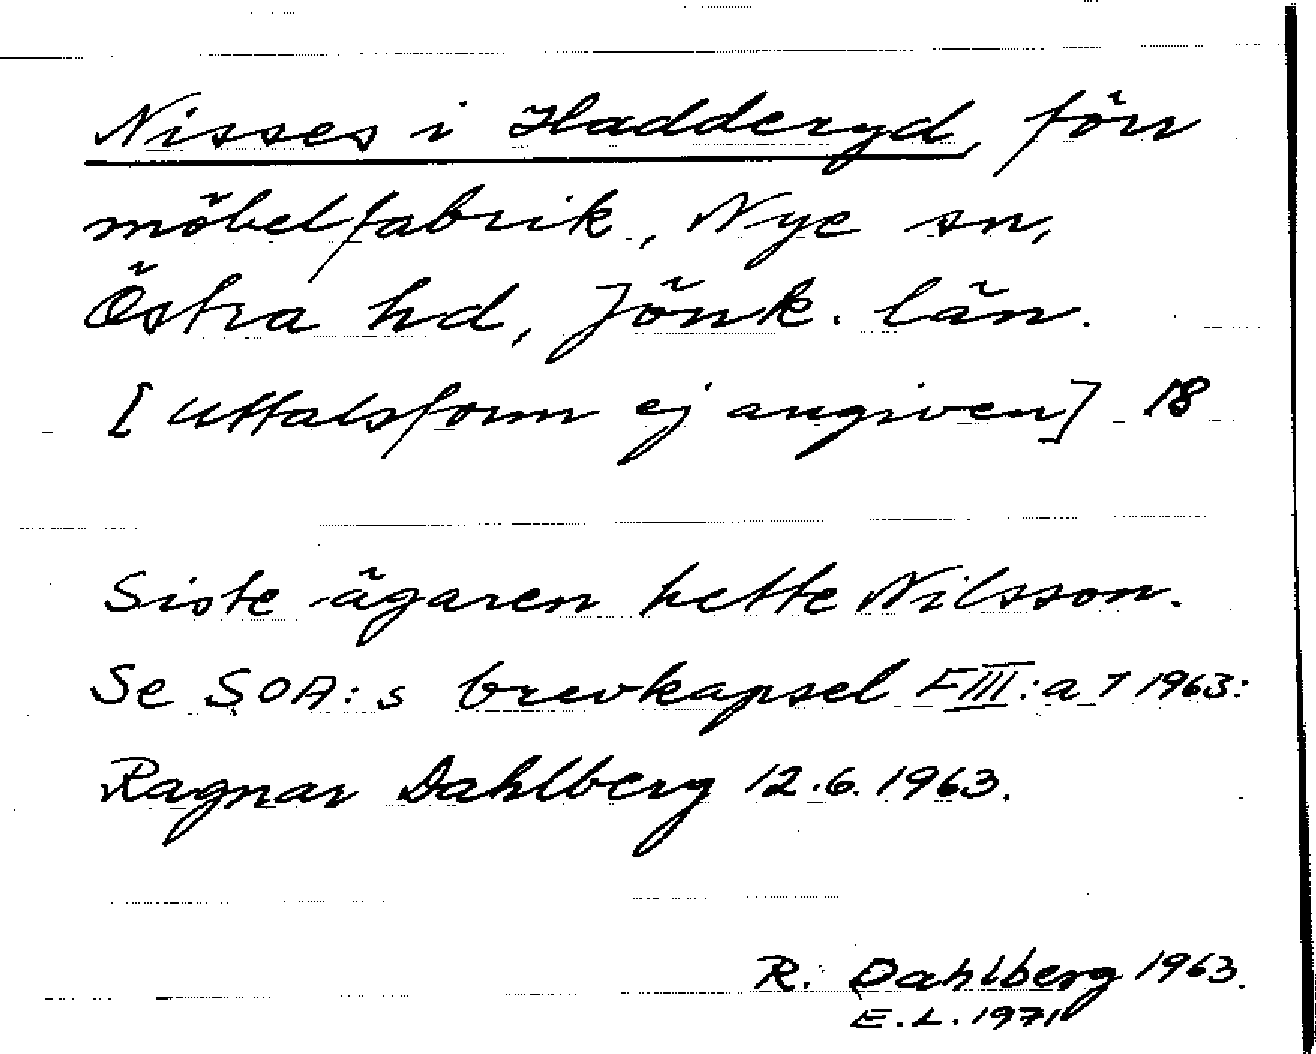 Nisses i Hadderyd, förr
möbelfabrik, Nye sn,
Östra hd, Jönk. län.
[Uttalsform ej angiven] 18
Siste ägaren hette Nilsson.
Se SOA:s brevkapsel FIII:a 7 1963:
Ragnar Dahlberg 12.6.1963.
R. Dahlberg 1963.
E.L. 1971